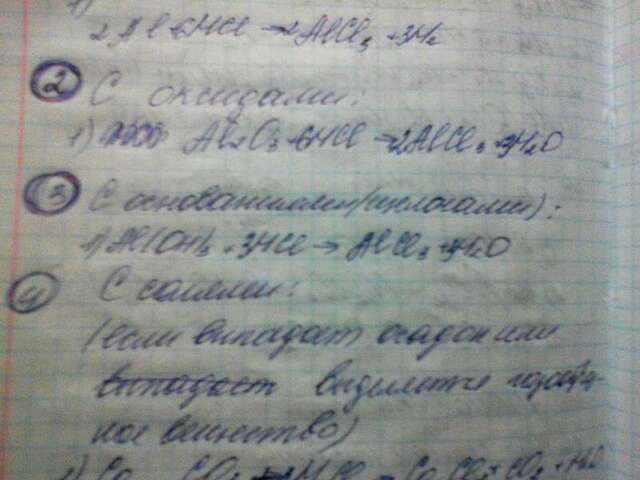 1)
2Al+6HCl→2AlCl3+3H2
2 С оксидами:
1) Al2O3+6HCl→2AlCl3+3H2O
3 С основаниями(щелочами):
1)Al(OH)3+3HCl→AlCl3+3H2O
4 С солями:
(если выпадает осадок или
выпадает выделяется газообраз-
ное вещество)
1) Ca CO3+2HCl→CaCl2+CO2+H2O